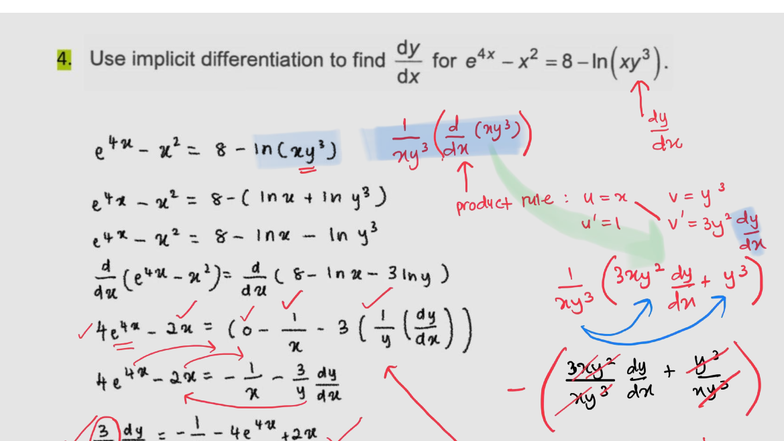 4. Use implicit differentiation to find dy/dx for e^{4x} − x^2 = 8 − ln(xy^3).
dy/dx
e^{4x} − x^2 = 8 − ln(xy^3)
1/xy^3 (d/dx (xy^3))
product rule : u = x v = y^3
u' = 1 v' = 3y^2 dy/dx
e^{4x} − x^2 = 8 − (ln x + ln y^3)
e^{4x} − x^2 = 8 − ln x − ln y^3
d/dx (e^{4x} − x^2) = d/dx (8 − ln x − 3 ln y)
1/xy^3 (3xy^2 dy/dx + y^3)
4e^{4x} − 2x = (0 − 1/x − 3 (1/y (dy/dx)))
4e^{4x} − 2x = − 1/x − 3/y dy/dx
− (3xy^2/xy^3 dy/dx + y^3/xy^3)
3 dy/dx = − 1 − 4e^{4x} + 2x